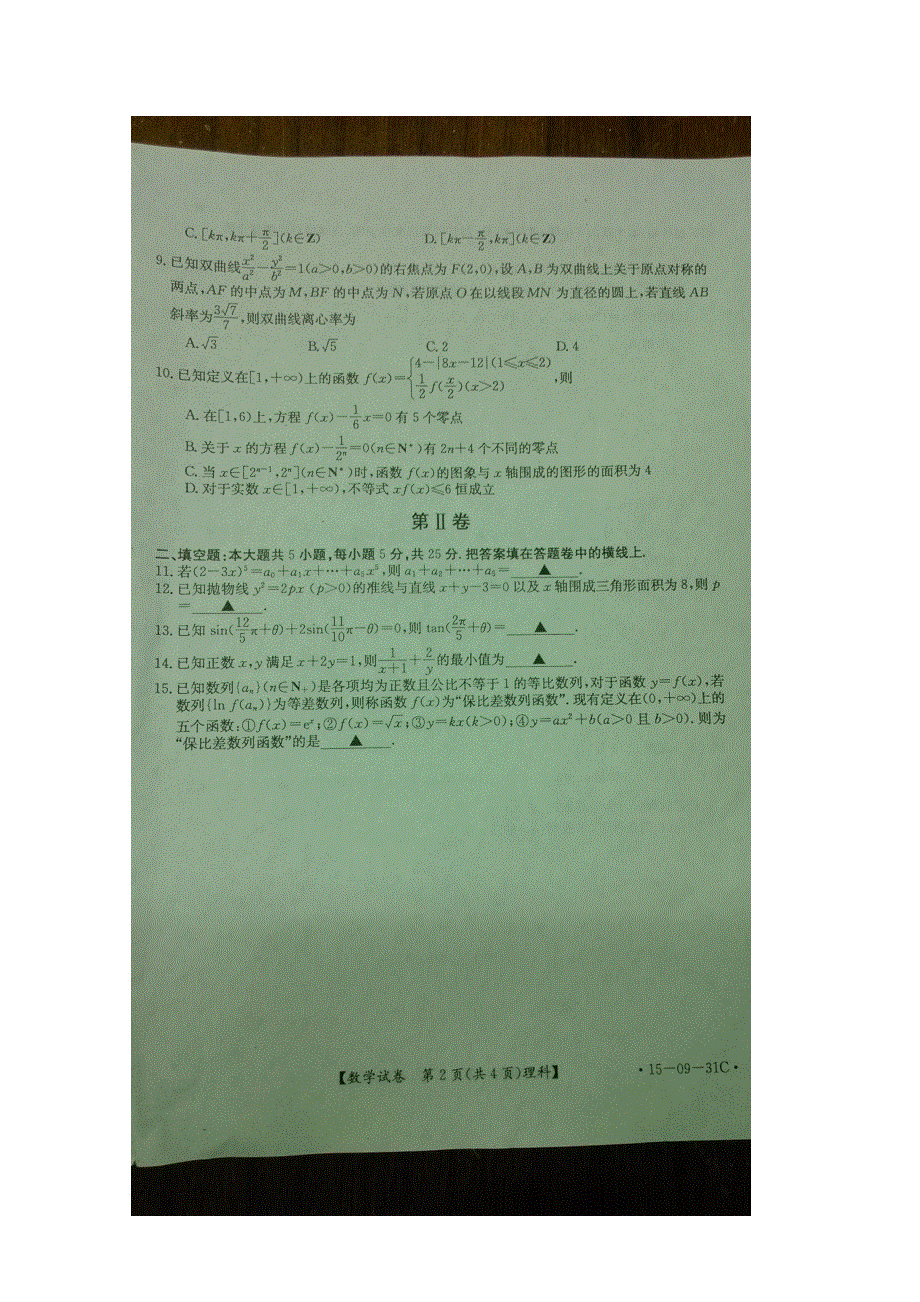 C. [kπ,kπ+π/2](k∈Z) D. [kπ−π/2,kπ](k∈Z)
9. 已知双曲线x²/a²−y²/b²=1(a>0,b>0)的右焦点为F(2,0),设A,B为双曲线上关于原点对称的
两点,AF的中点为M,BF的中点为N,若原点O在以线段MN为直径的圆上,若直线AB
斜率为3√7/7,则双曲线离心率为
A. √3 B. √5 C. 2 D. 4
10. 已知定义在[1,+∞)上的函数f(x)={4−|8x−12|(1≤x≤2) 1/2 f(x/2)(x>2) ,则
A. 在[1,6)上,方程f(x)−1/6 x=0有5个零点
B. 关于x的方程f(x)−1/2ⁿ=0(n∈N*)有2n+4个不同的零点
C. 当x∈[2ⁿ⁻¹,2ⁿ](n∈N*)时,函数f(x)的图象与x轴围成的图形的面积为4
D. 对于实数x∈[1,+∞),不等式xf(x)≤6恒成立
第Ⅱ卷
二、填空题:本大题共5小题,每小题5分,共25分.把答案填在答题卷中的横线上.
11. 若(2−3x)⁵=a₀+a₁x+⋯+a₅x⁵,则a₁+a₂+⋯+a₅=____▲____.
12. 已知抛物线y²=2px (p>0)的准线与直线x+y−3=0以及x轴围成三角形面积为8,则p
=____▲____.
13. 已知sin(12/5 π+θ)+2sin(11/10 π−θ)=0,则tan(2π/5+θ)=____▲____.
14. 已知正数x,y满足x+2y=1,则1/(x+1)+2/y的最小值为____▲____.
15. 已知数列{aₙ}(n∈N₊)是各项均为正数且公比不等于1的等比数列,对于函数y=f(x),若
数列{ln f(aₙ)}为等差数列,则称函数f(x)为“保比差数列函数”.现有定义在(0,+∞)上的
五个函数:①f(x)=eˣ;②f(x)=√x;③y=kx(k>0);④y=ax²+b(a>0且b>0).则为
“保比差数列函数”的是____▲____.
【数学试卷 第2页(共4页)理科】 ·15−09−31C·